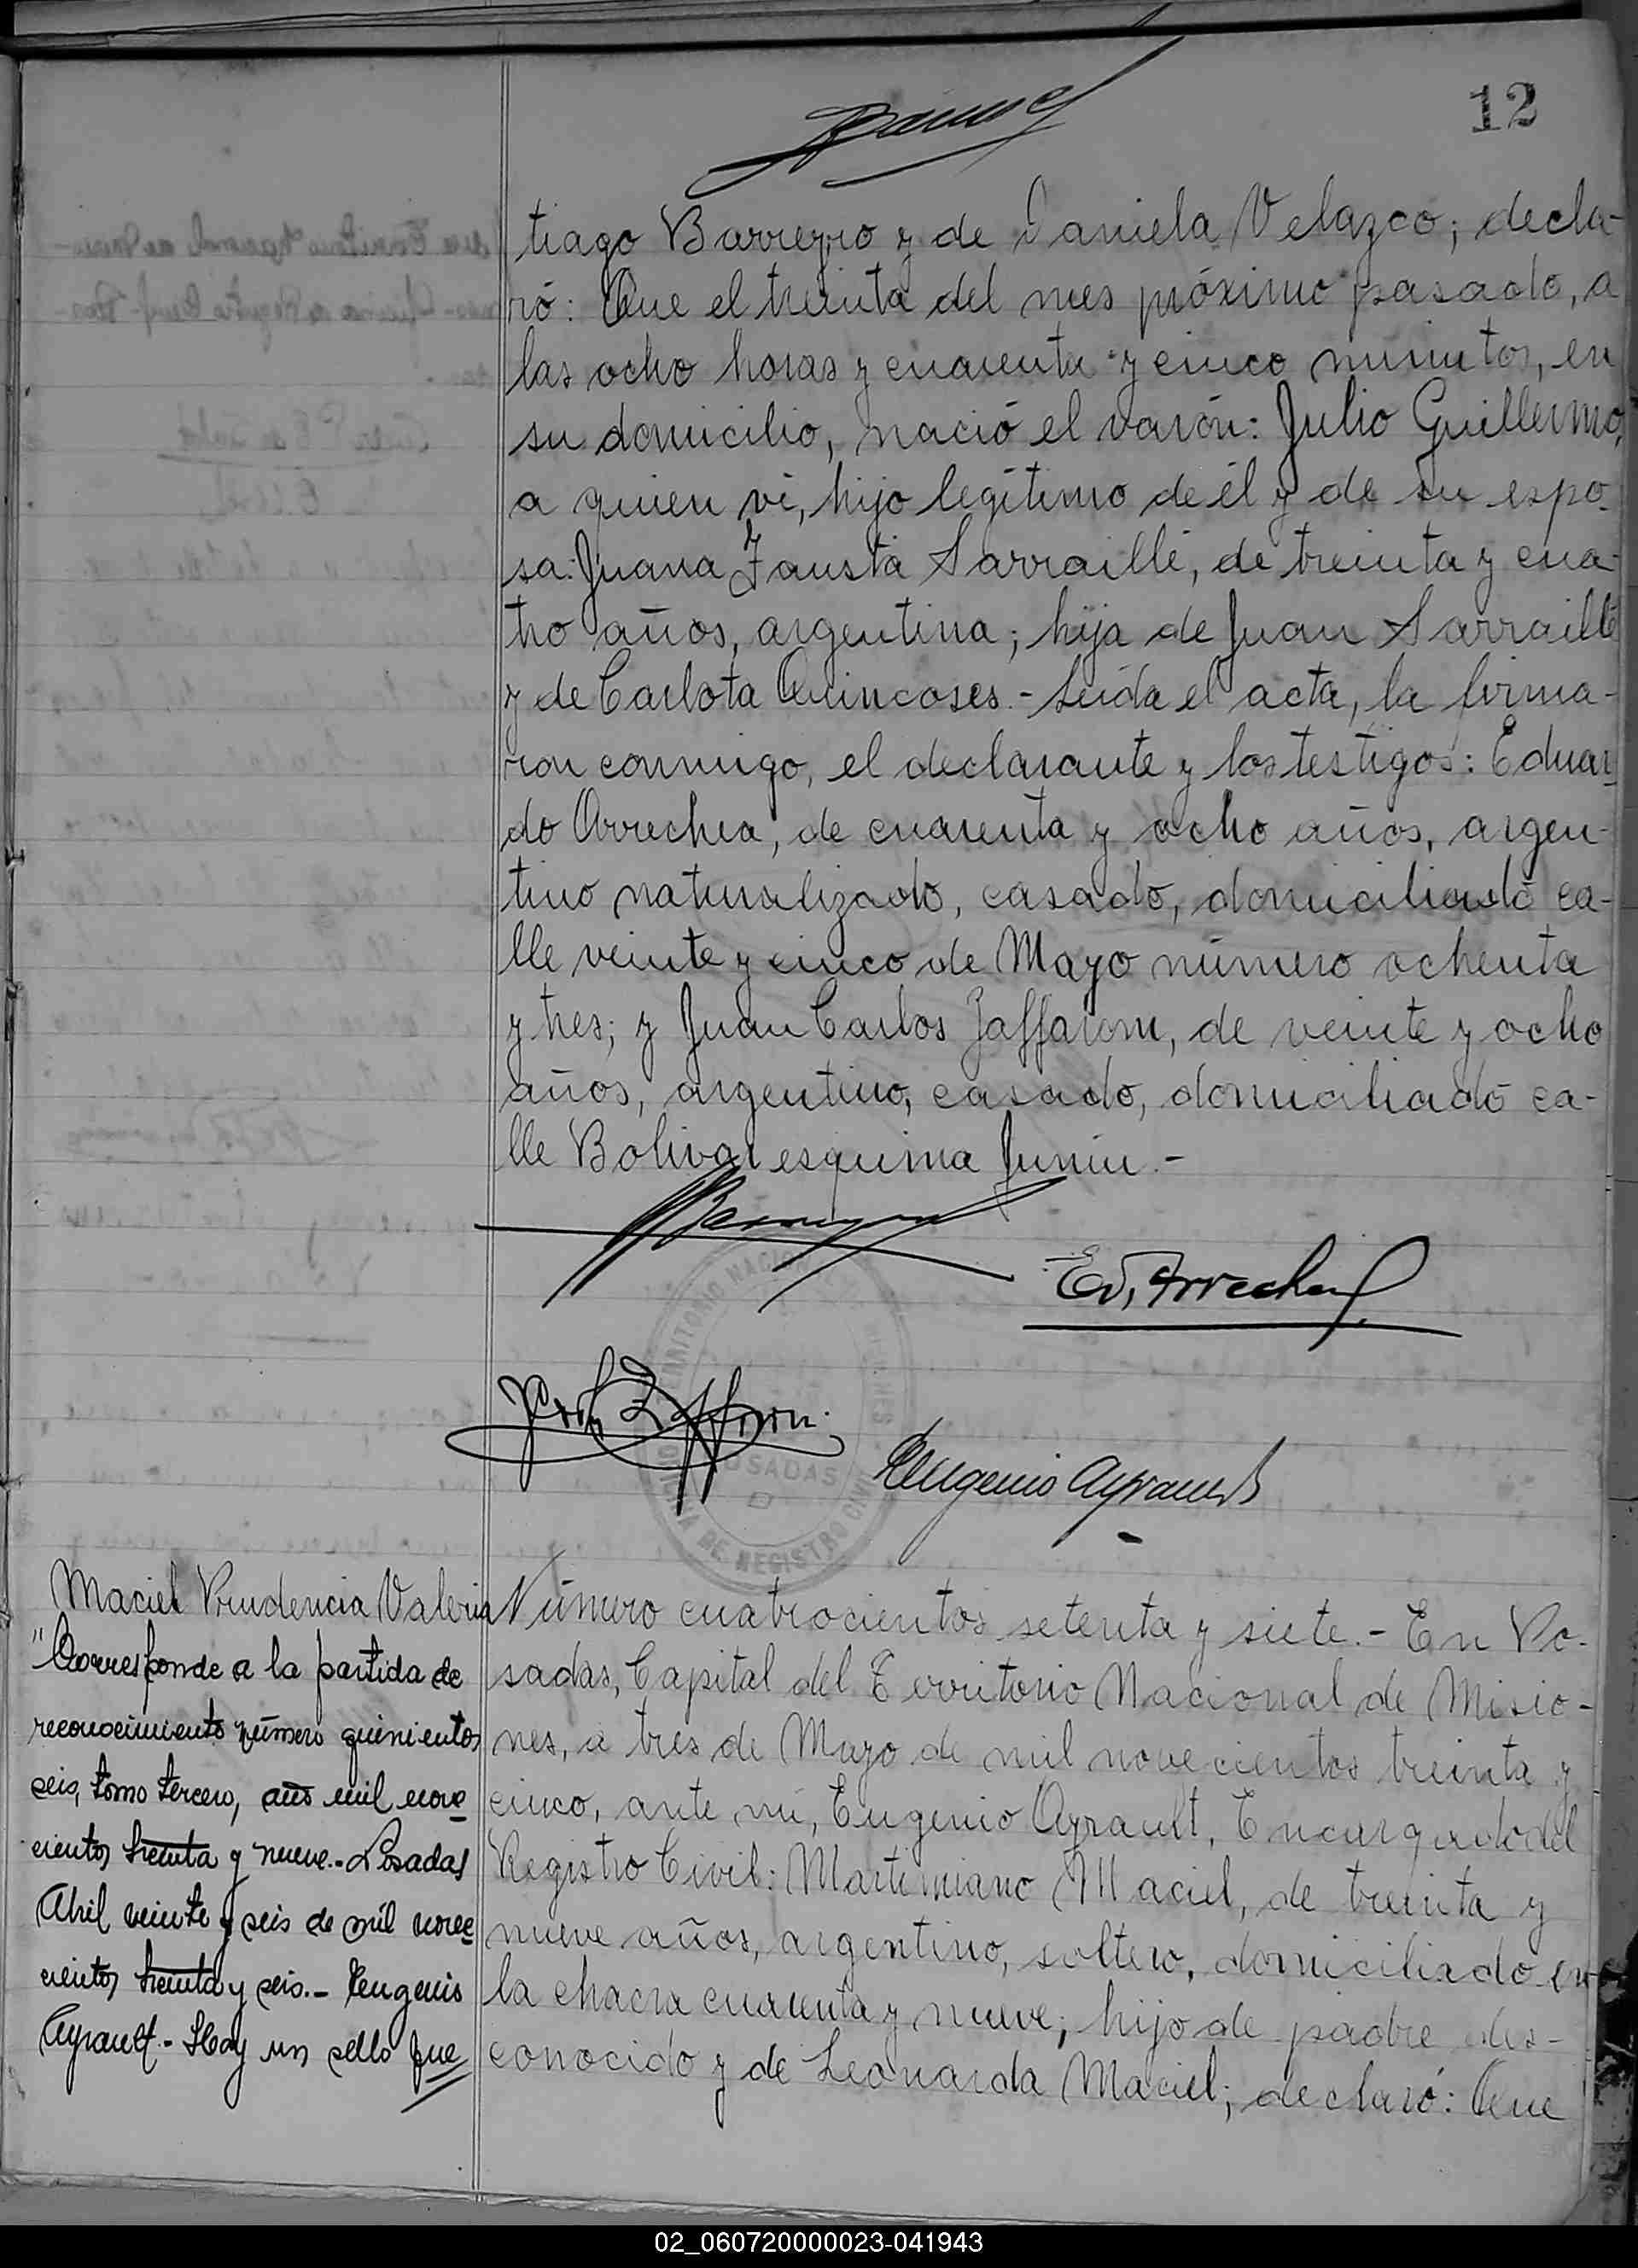 12
tiago Barreyro y de Daniela Velazco; decla-
ró: Que el treinta del mes próximo pasado, a
las ocho horas y cuarenta y cinco minutos, en
su domicilio, nació el varón: Julio Guillermo,
a quien vi, hijo legítimo de él y de su espo-
sa: Juana Fausta Sarraillé, de treinta y cua-
tro años, argentina; hija de Juan Sarraillé
y de Carlota Quincoses.- Leída el acta, la firma-
ron conmigo, el declarante y los testigos: Eduar-
do Arrechea, de cuarenta y ocho años, argen-
tino naturalizado, casado, domiciliado ca-
lle veinte y cinco de Mayo número ochenta
y tres; y Juan Carlos Zaffaroni, de veinte y ocho
años, argentino, casado, domiciliado ca-
lle Bolivar esquina Junin.-
Ed. Arrechea
Eugenio Ayrault
TERRITORIO NACIONAL MISIONES
POSADAS
OFICINA DE REGISTRO CIVIL
Maciel Prudencia Valeria
"Corresponde a la partida de
reconocimiento número quinientos
seis, tomo tercero, año mil nove
cientos treinta y nueve.- Posadas
Abril veinte y seis de mil nove
cientos treinta y seis.- Eugenio
Ayrault.- Hay un sello que
Número cuatrocientos setenta y siete.- En Po-
sadas, Capital del Territorio Nacional de Misio-
nes, a tres de Mayo de mil novecientos treinta y
cinco, ante mi, Eugenio Ayrault, Encargado del
Registro Civil: Martimiano Maciel, de treinta y
nueve años, argentino, soltero, domiciliado en
la chacra cuarenta y nueve; hijo de padre des-
conocido y de Leonarda Maciel; declaró: Que
02_060720000023-041943